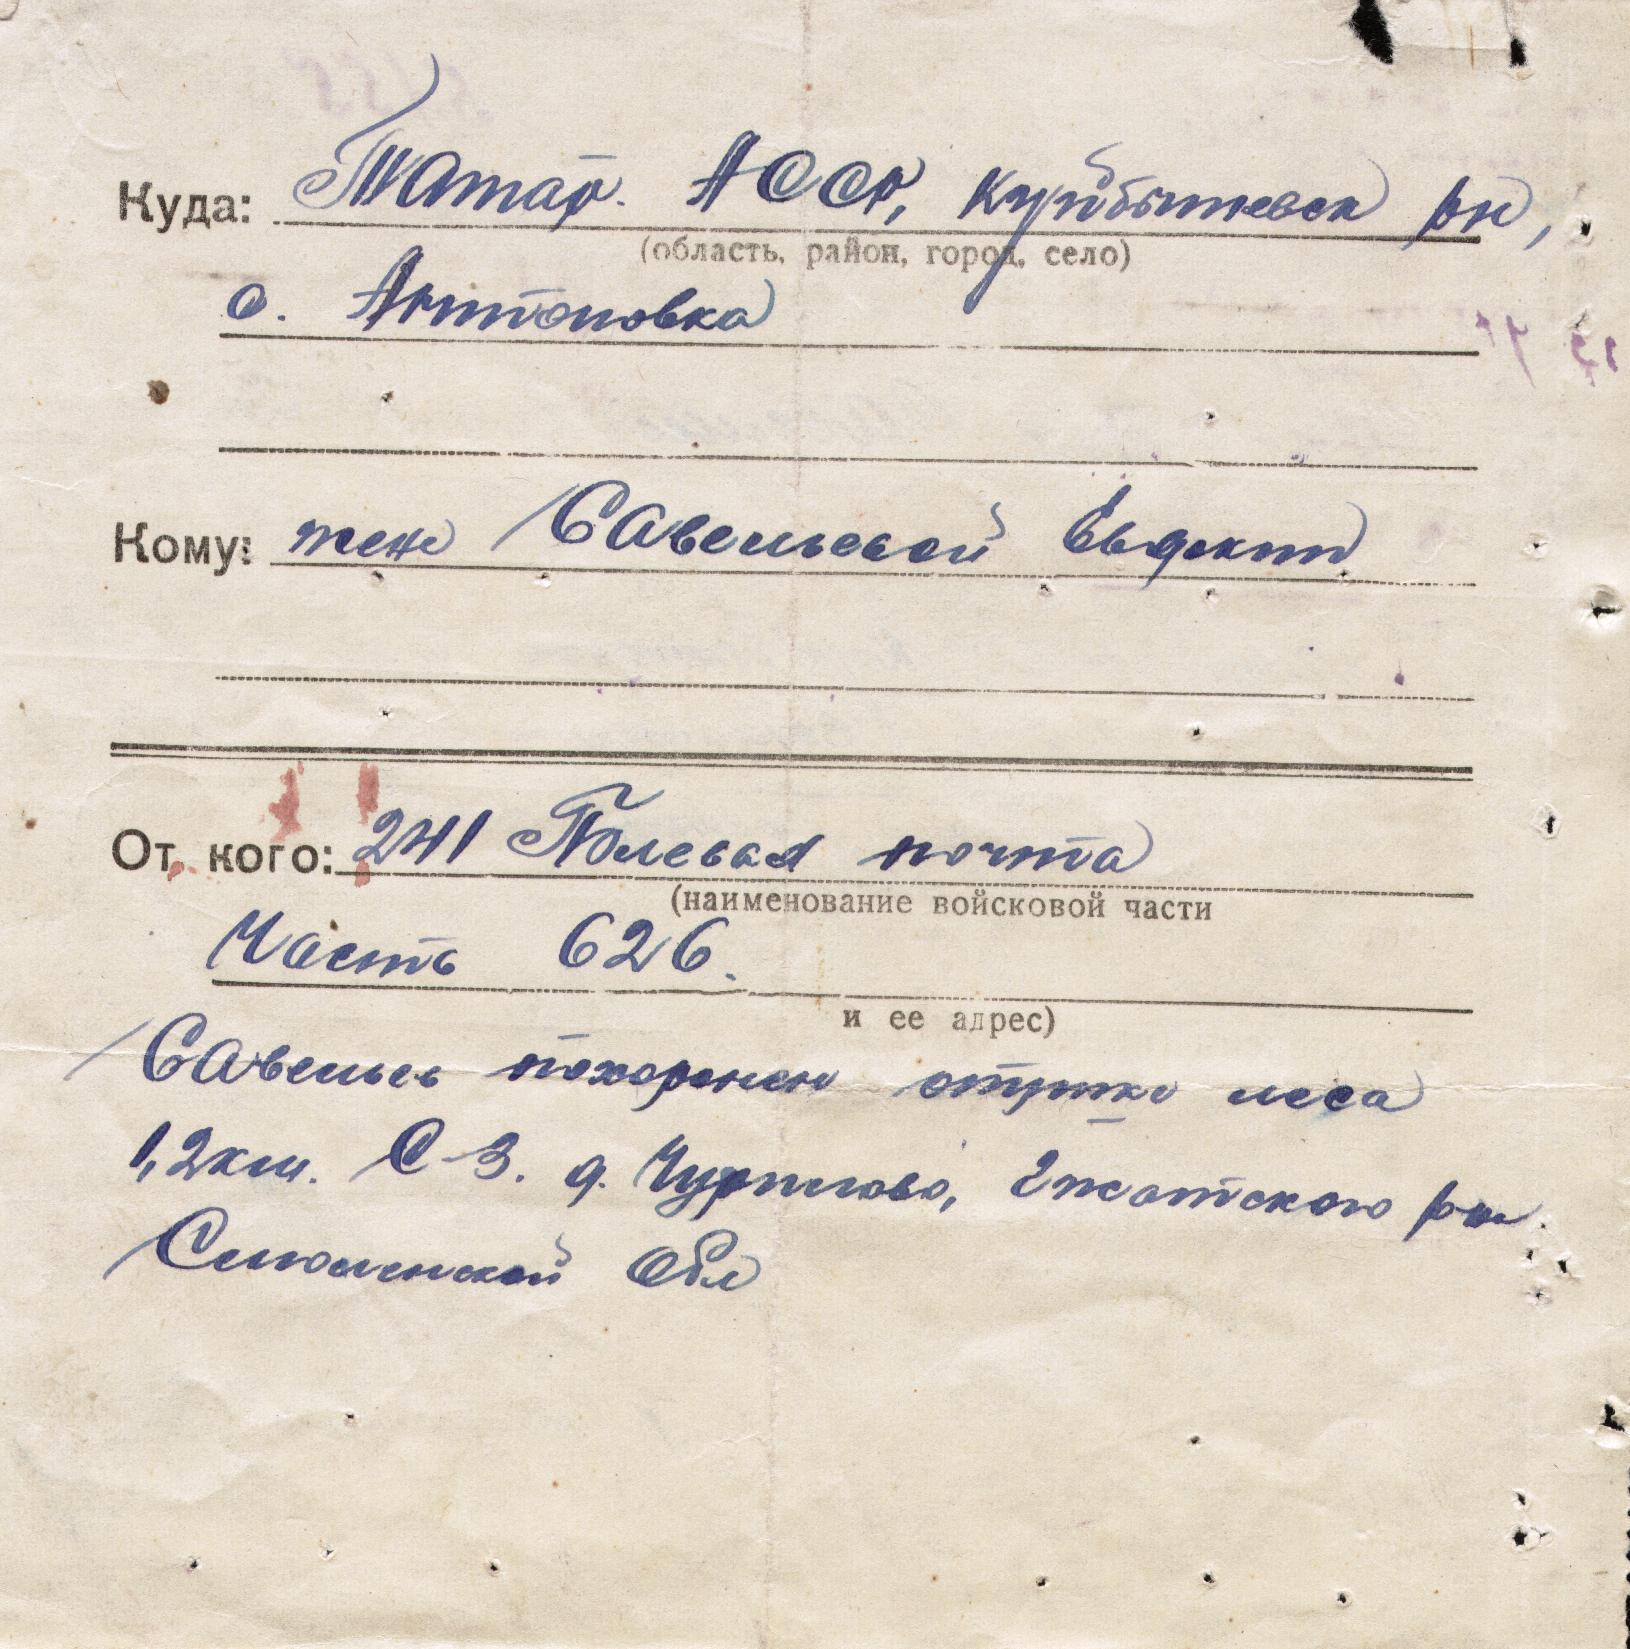 Куда: Татар. АССР, Куйбышевск рн,
(область, район, город, село)
с. Антоновка
Кому: жене Савельевой Евдокии
От кого: 241 Полевая почта
(наименование войсковой части
Часть 626.
и ее адрес)
Савельев похоронен опушке леса
1,2 км. С-З. д. Чурилово, Гжатского р-н.
Смоленской Обл